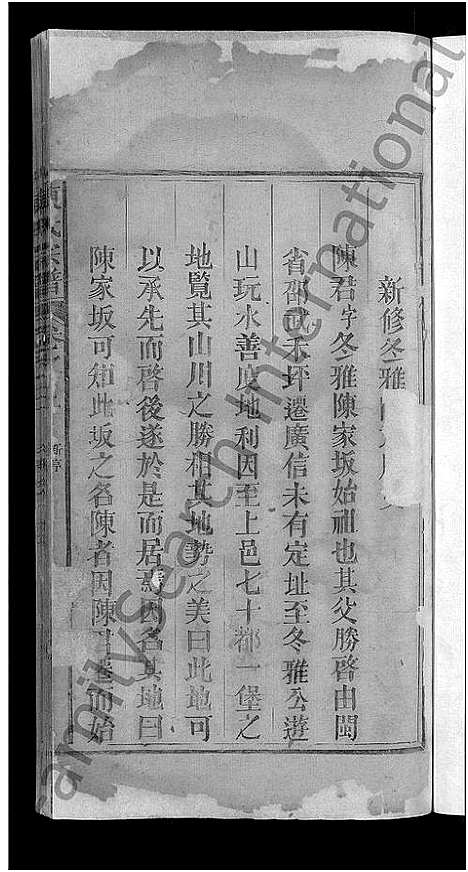 新修冬雅
陳君字冬雅陳家坂始祖也其父勝啓由閩
省邵武禾坪遷廣信未有定址至冬雅公遊
山玩水善度地利因至上邑七十都一堡之
地覽其山川之勝相其地勢之美曰此地可
以承先而啓後遂於是而居焉因名其地曰
陳家坂可知此坂之名陳者因陳君卷而始
氏宗譜
FamilySearch International